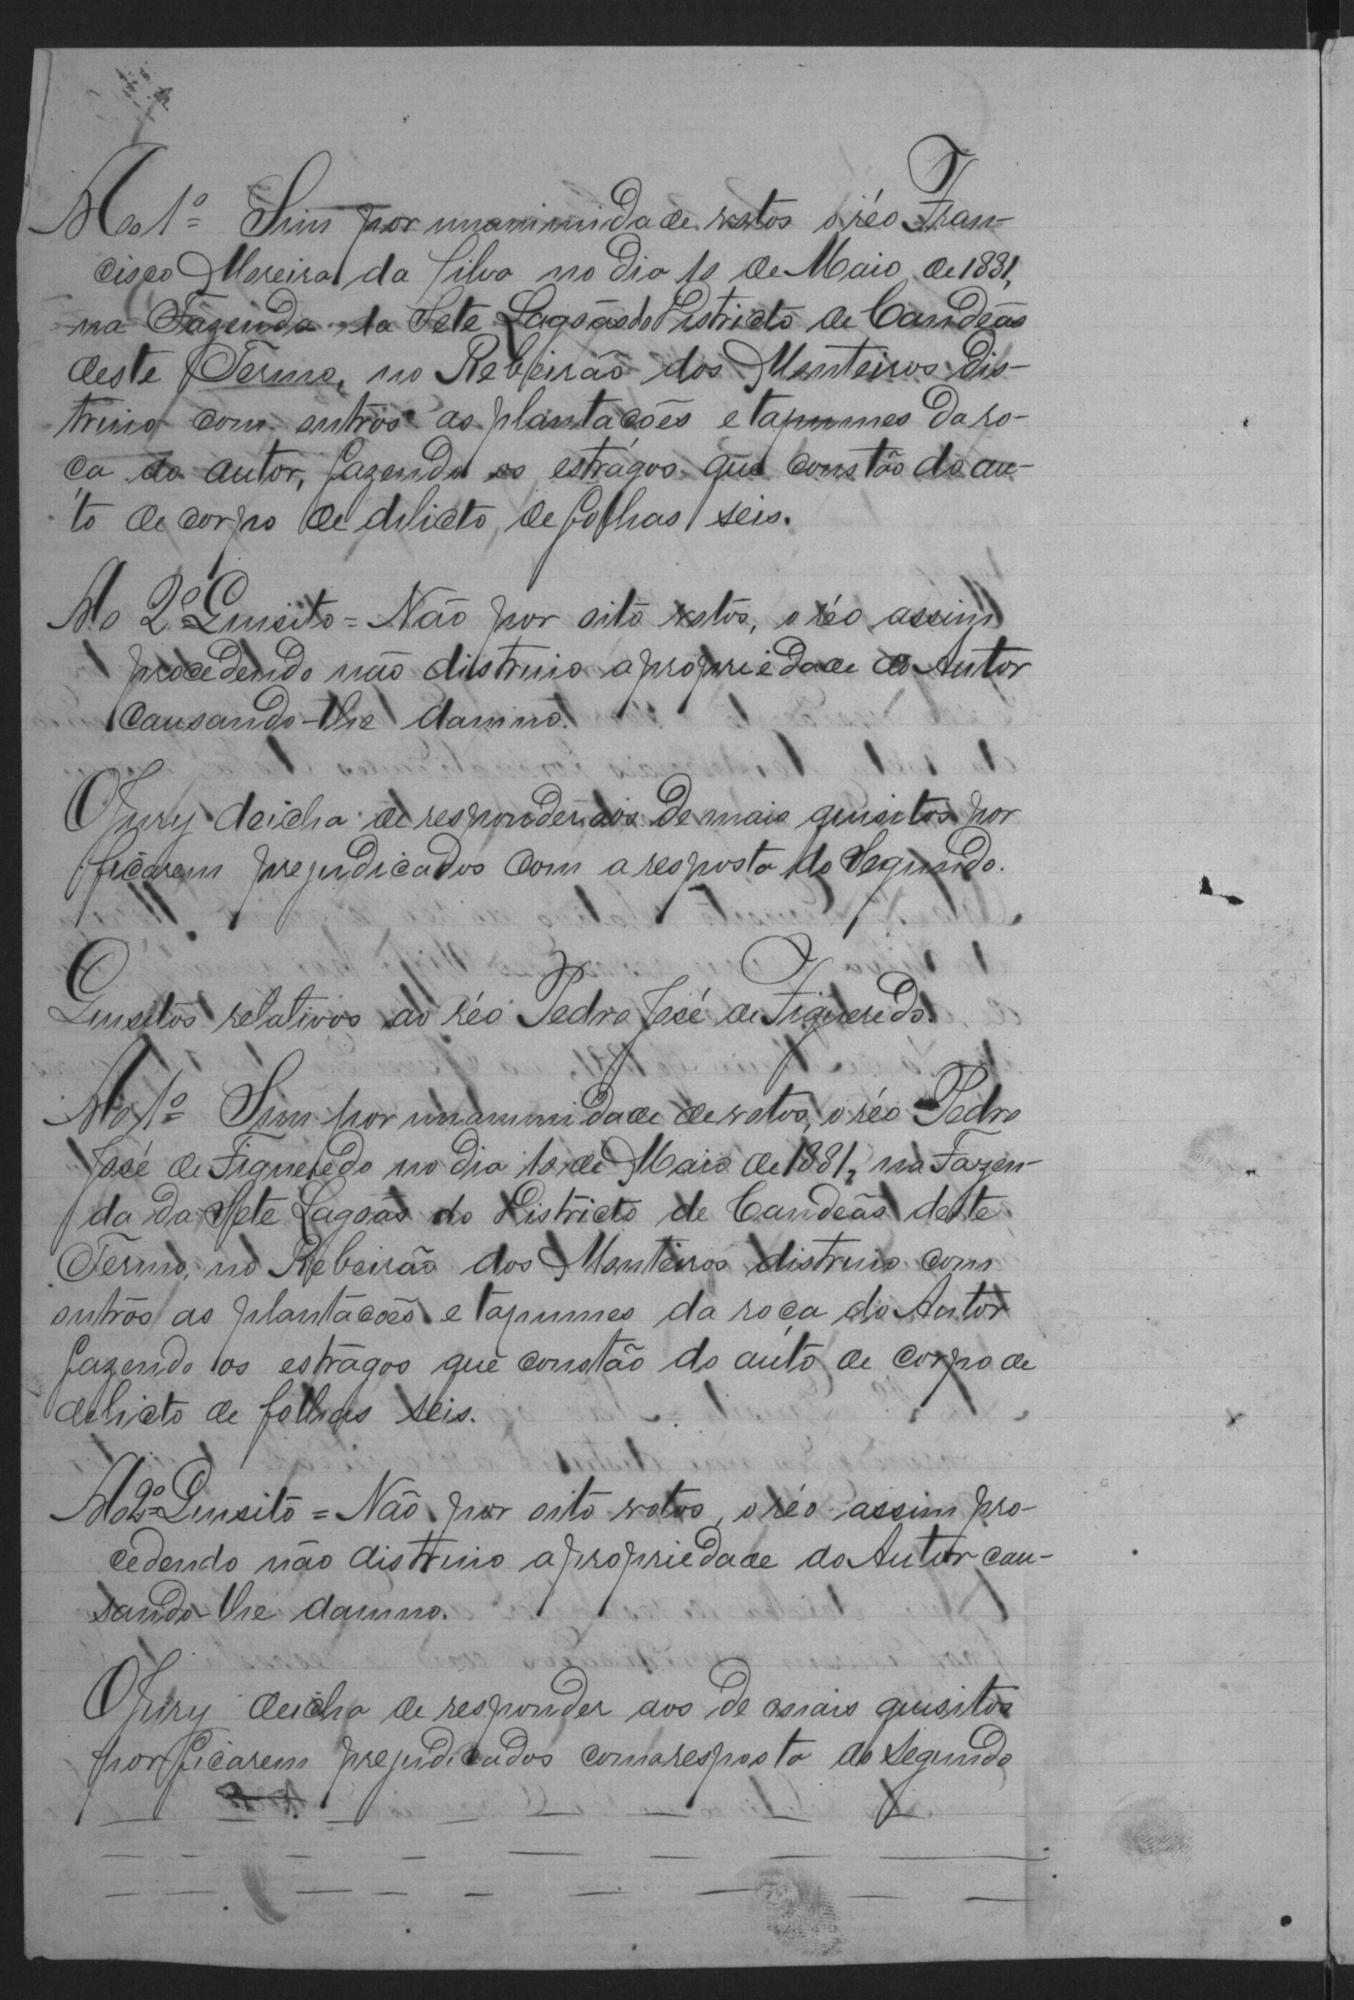 Ao 1º = Sim por unanimidade votos o réo Fran-
cisco Moreira da Silva no dia 10 de Maio de 1881,
na Fazenda da Sete Lagoas do Districto de Candeãs
deste Termo, no Rebeirão dos Monteiros dis-
truio com outros as plantacões e tapumes da ro-
ca do autor, fazendo os estrágos que constão do au-
to de corpo de delicto de folhas seis.
Ao 2º Quisito = Não por oito votos, o réo assim
procedendo não distruio a propriedade do Autor
causando-lhe damno.
O Jury deicha de responder aos de mais quisitos por
ficarem prejudicados com a resposta do Segundo.
Quisitos relativos ao réo Pedro José de Figueredo.
Ao 1º = Sim por unanimidade de votos, o réo Pedro
José de Figueredo no dia 10 de Maio de 1881, na Fazen-
da da Sete Lagoas do Districto de Candeãs deste
Termo, no Rebeirão dos Monteiros distruio com
outros as plantácoẽs e tapumes da roça do Autor
fazendo os estrágos que constão do aúto de corpo de
delicto de folhas seis.
Ao 2º Quisito = Não por oito votos, o réo assim pro-
cedendo não distruio a propriedade do Autor cau-
sando-lhe damno.
O Jury deicha de responder aos de mais quisitos
por ficarem prejudicados com a resposta do Segundo